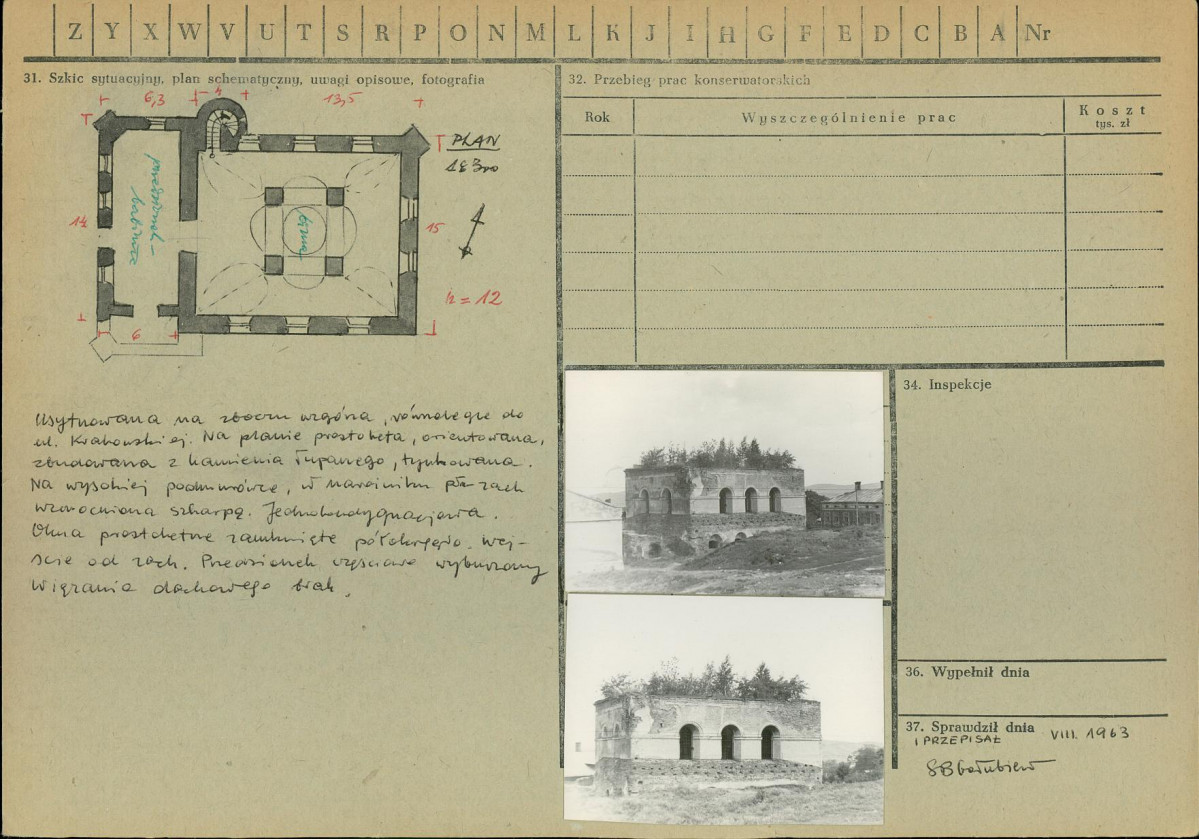 Z Y X W V U T S R P O N M L K J I H G F E D C B A Nr
31. Szkic sytuacyjny, plan schematyczny, uwagi opisowe, fotografia
6,3
4
13,5
14
15
6
h = 12
PLAN
1:300
przedsionek –
babiniec
bima
Usytuowana na zboczu wzgórza, równolegle do
ul. Krakowskiej. Na planie prostokąta, orientowana,
zbudowana z kamienia łupanego, tynkowana.
Na wysokiej podmurówce, w narożniku płn-zach
wzmocniona szkarpą. Jednokondygnacjowa.
Okna prostokątne zamknięte półokrągło. Wej-
ście od zach. Przedsionek częściowo wyburzony
Więzania dachowego brak.
32. Przebieg prac konserwatorskich
Rok
Wyszczególnienie prac
Koszt
tys. zł
34. Inspekcje
36. Wypełnił dnia
37. Sprawdził dnia
I PRZEPISAŁ
VIII. 1963